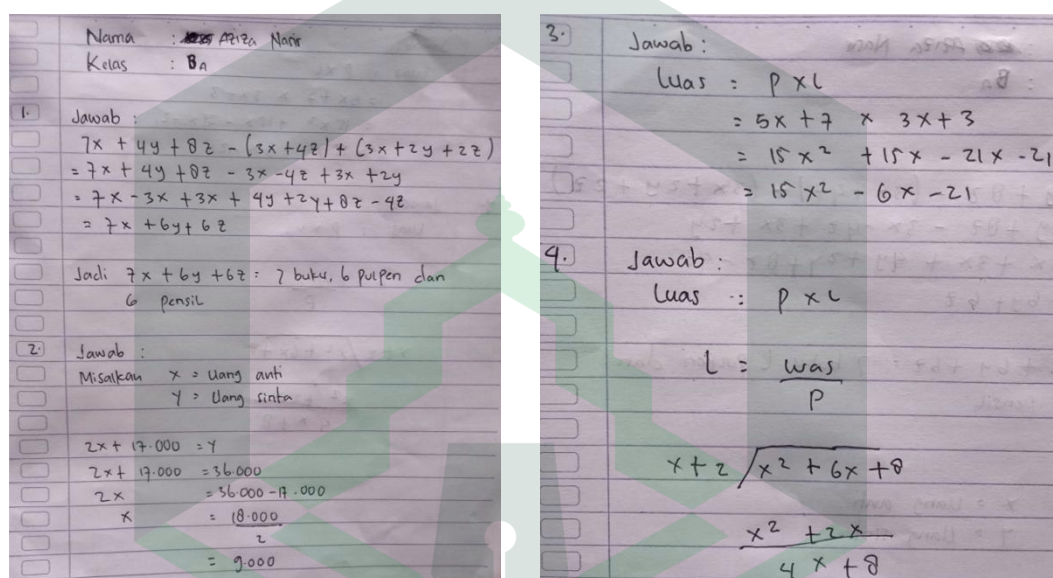 Nama : Aziza Nasir
Kelas : 8A
1. Jawab :
7x + 4y + 8z - (3x + 4z) + (3x + 2y + 2z)
= 7x + 4y + 8z - 3x - 4z + 3x + 2y
= 7x - 3x + 3x + 4y + 2y + 8z - 4z
= 7x + 6y + 6z
Jadi 7x + 6y + 6z = 7 buku, 6 pulpen dan
6 pensil
2. Jawab :
Misalkan x = Uang anti
y = Uang sinta
2x + 17.000 = y
2x + 17.000 = 36.000
2x = 36.000 - 17.000
x = 18.000
2
= 9.000
3. Jawab :
Luas = p x l
= 5x + 7 x 3x + 3
= 15x² + 15x - 21x - 21
= 15x² - 6x - 21
4. Jawab :
Luas : p x l
l = Luas
p
x + 2 / x² + 6x + 8
x² + 2x
4x + 8